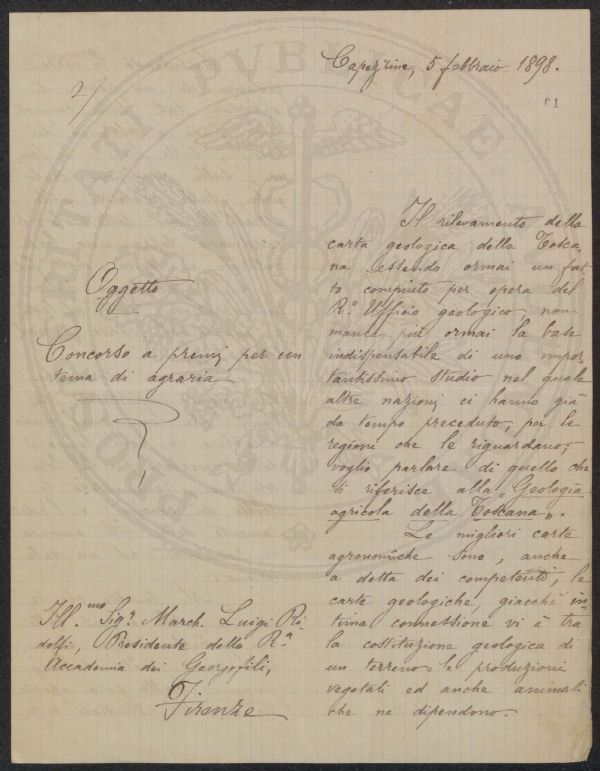 Capezzine, 5 febbraio 1898.
2/
61
Il rilevamento della
carta geologica della Tosca-
na essendo ormai un fat-
to compiuto per opera del
R.º Ufficio geologico, non
manca più ormai la base
indispensabile di uno impor-
tantissimo studio nel quale
altre nazioni ci hanno già
da tempo preceduto, per le
regioni che le riguardano;
voglio parlare di quello che
si riferisce alla „Geologia
agricola della Toscana„.
Le migliori carte
agronomiche sono, anche
a detta dei competenti, le
carte geologiche, giacchè in-
tima connessione vi è tra
la costituzione geologica di
un terreno e le produzioni
vegetali ed anche animali
che ne dipendono.
Oggetto
Concorso a premj per un
tema di agraria
Ill.mo Sig.r March. Luigi Ri-
dolfi, Presidente della R.a
Accademia dei Georgofili,
Firenze
PROSPERITATI PUBLICAE